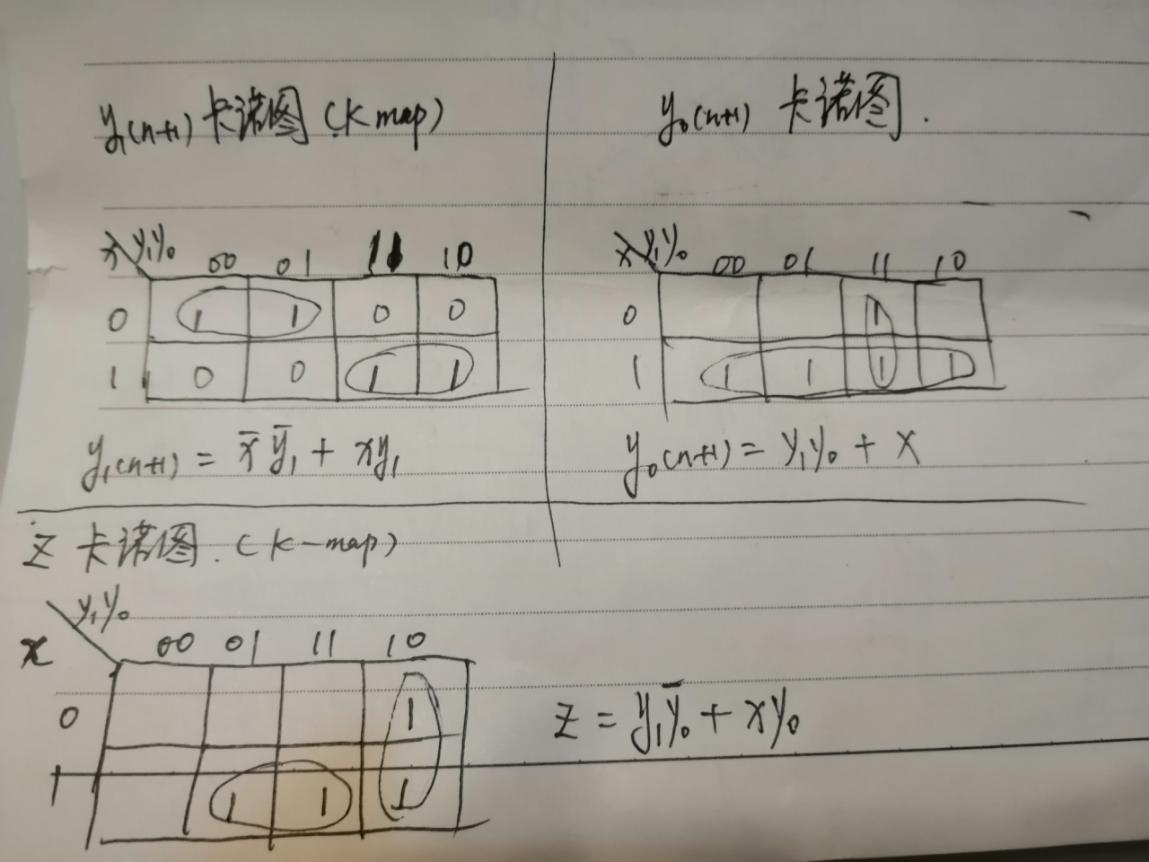 y₁(n+1) 卡诺图 (K map)
x\y₁y₀ 00 01 11 10
0 1 1 0 0
1 0 0 1 1
y₁(n+1) = x̄ ȳ₁ + xy₁
y₀(n+1) 卡诺图.
x\y₁y₀ 00 01 11 10
0 1
1 1 1 1 1
y₀(n+1) = y₁y₀ + x
Z 卡诺图. (K-map)
x\y₁y₀ 00 01 11 10
0 1
1 1 1 1
Z = y₁ȳ₀ + xy₀